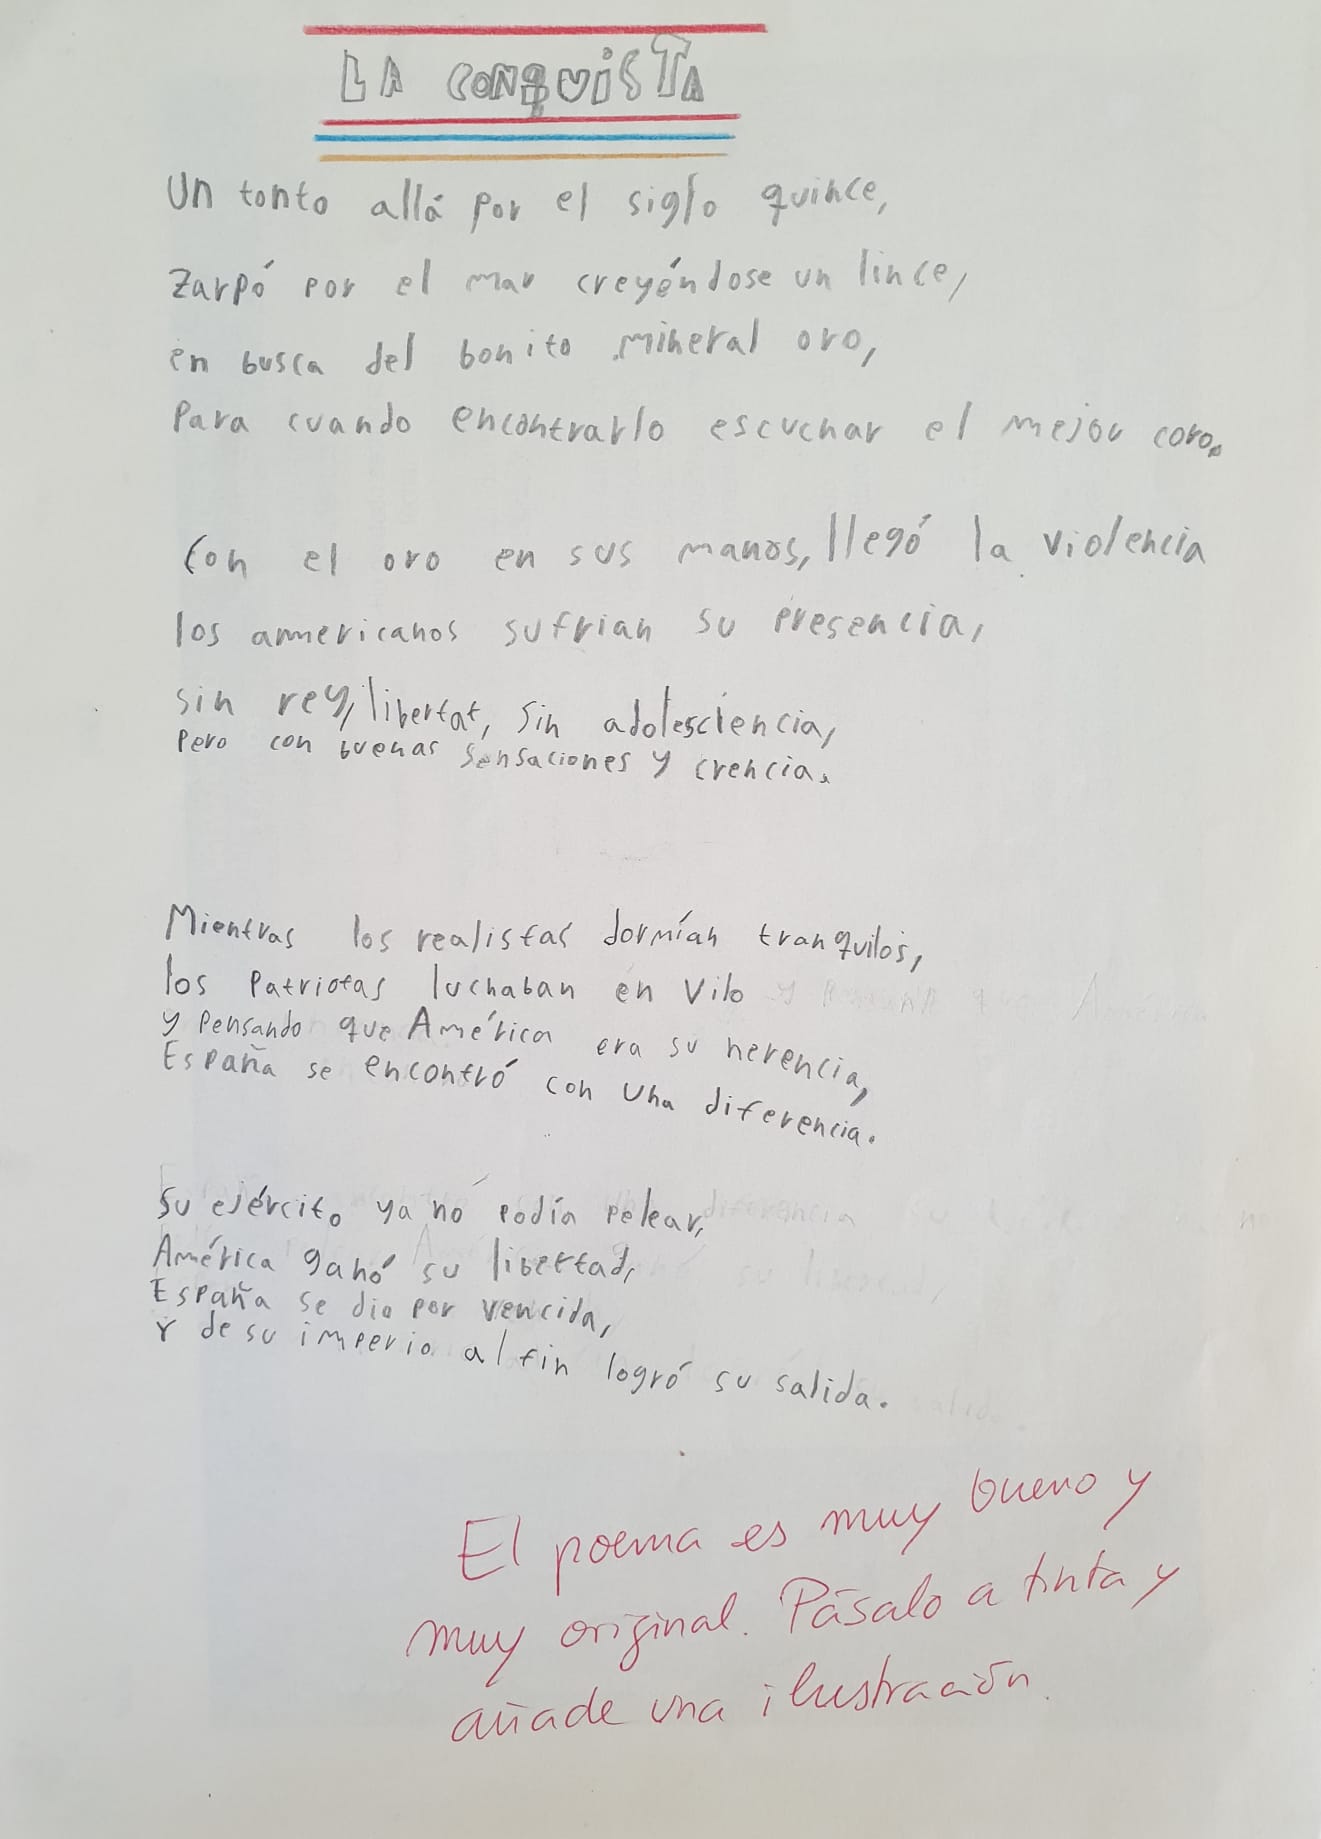 LA CONQUISTA
Un tonto allá por el siglo quince,
Zarpó por el mar creyéndose un lince,
en busca del bonito mineral oro,
Para cuando encontrarlo escuchar el mejor coro.
Con el oro en sus manos, llegó la violencia
los americanos sufrian su presencia,
sin rey, libertat, sin adolesciencia,
Pero con buenas sensaciones y crencia.
Mientras los realistas dormían tranquilos,
los Patriotas luchaban en vilo
y Pensando que América era su herencia,
España se encontró con una diferencia.
Su ejército ya no podía pelear,
América ganó su libertad,
España se dio por vencida,
Y de su imperio al fin logró su salida.
El poema es muy bueno y
muy original. Pásalo a tinta y
añade una ilustración.